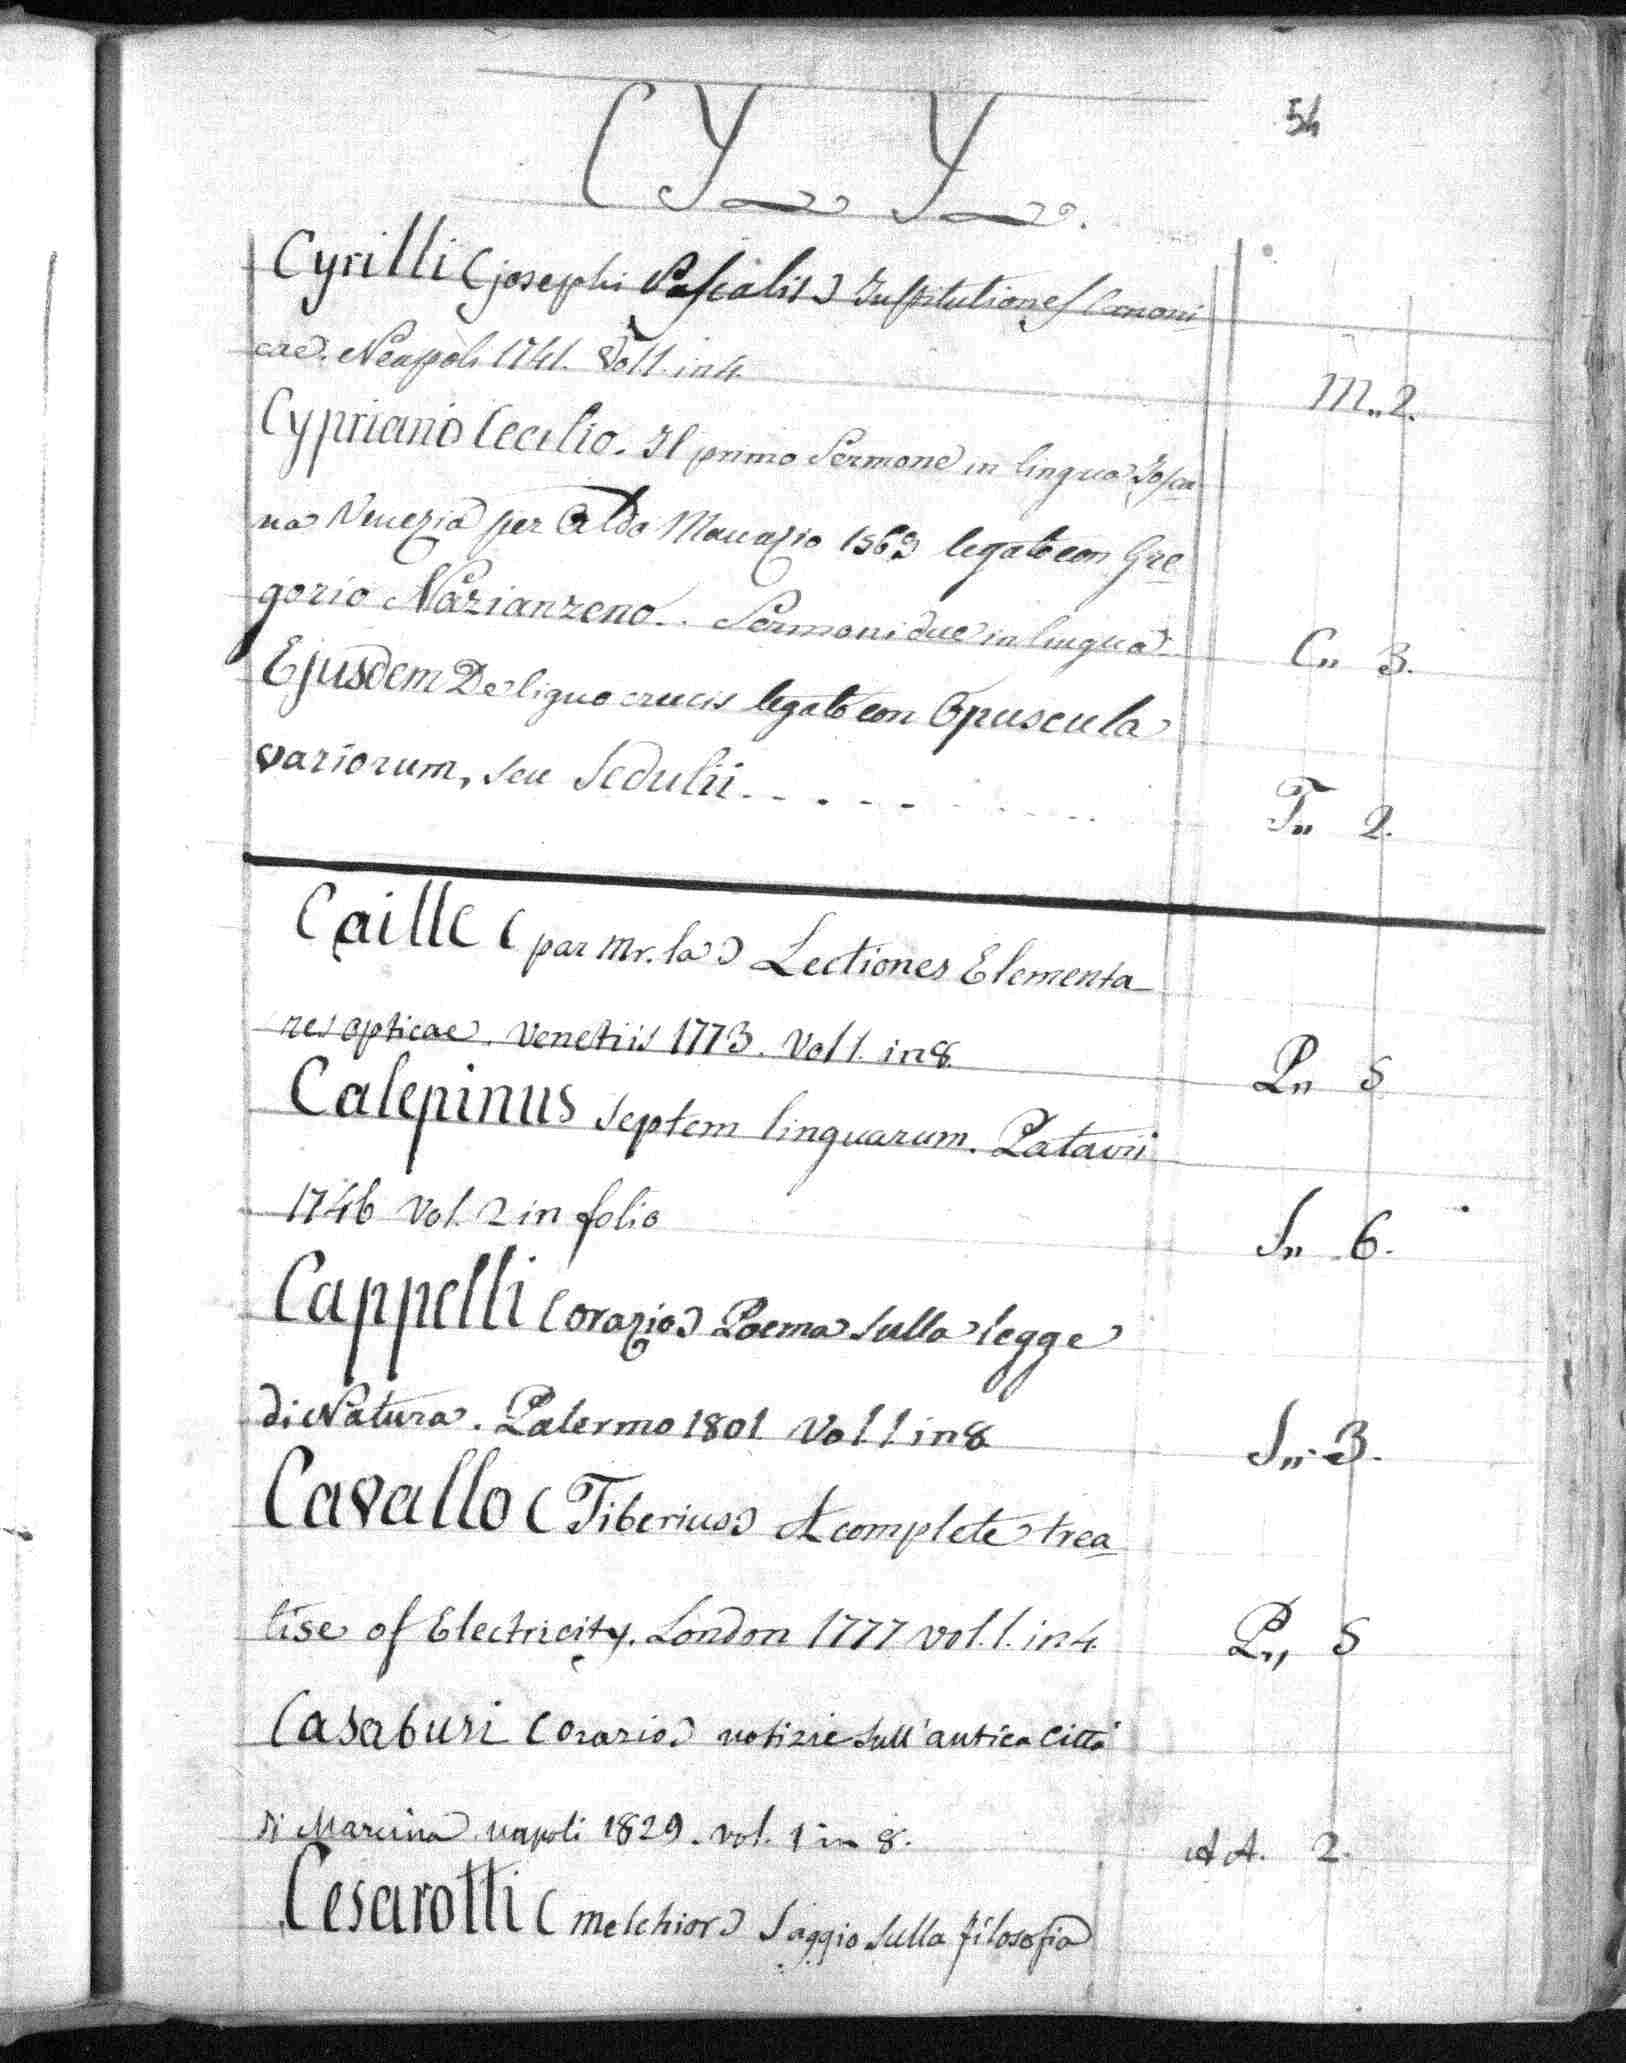 54
CY Y.
Cyrilli (josephi Pascalis) Institutiones Canoni-
cae. Neapoli 1741. Vol 1. in 4. M„ 2.
Cypriano Cecilio. Il primo Sermone in lingua Tosca-
na Venezia per Aldo Manazio 1569 legato con Gre-
gorio Nazianzeno.. Sermoni due in lingua C„ 3.
Ejusdem De ligno crucis legato con Opuscula
variorum, seu Sedulii. - - - - - - - T„ 2.
Caille (par Mr. la) Lectiones Elementa-
res opticae. Venetiis 1773. Vol 1. in 8. P„ 5
Calepinus septem linguarum. Patavii
1746 Vol. 2 in folio S„ 6.
Cappelli (orazio) Poema sulla legge
di Natura. Palermo 1801 Vol 1 in 8 S„ 3.
Cavallo (Tiberius) A complete trea-
tise of Electricity. London 1777 vol. 1. in 4. P„ 5
Casaburi (orazio) notizie sull'antica Città
di Marcina napoli 1829. vol. 1 in 8. AA. 2.
Cesarotti (Melchior) Saggio sulla filosofia